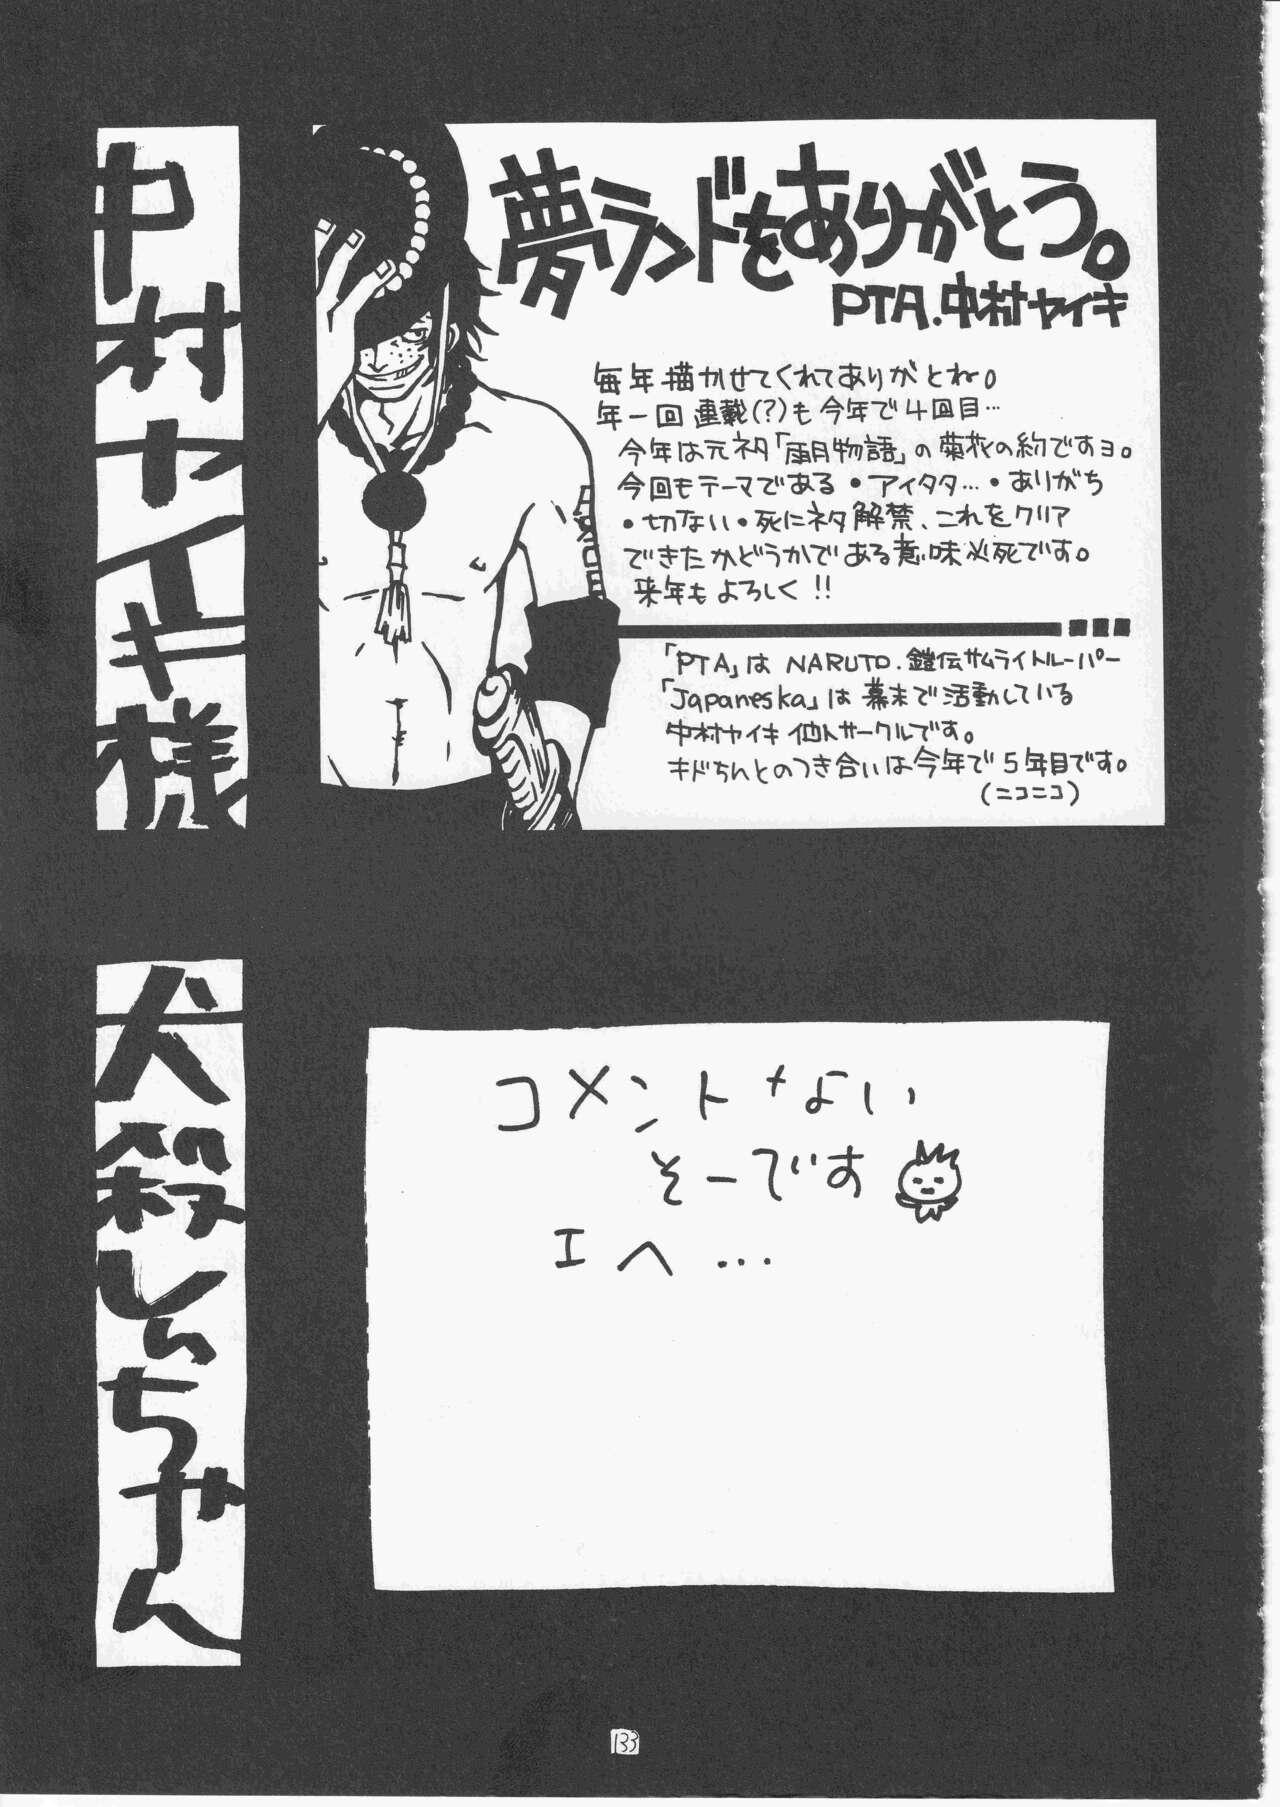 中村ヤイキ様
夢ランドをありがとう。
PTA.中村ヤイキ
毎年描かせてくれてありがとね。
年一回連載(?)も今年で4回目…
今年は元ネタ「雨月物語」の菊花の約ですヨ。
今回もテーマである・アイタタ…・ありがち
・切ない・死にネタ解禁、これをクリア
できたかどうかである意味必死です。
来年もよろしく!!
「PTA」は NARUTO.鎧伝サムライトルーパー
「Japaneska」は幕末で活動している
中村ヤイキ個人サークルです。
キドちんとのつき合いは今年で5年目です。
(ニコニコ)
犬殺しぃちゃん
コメントなよい
そーです
エへ…
133